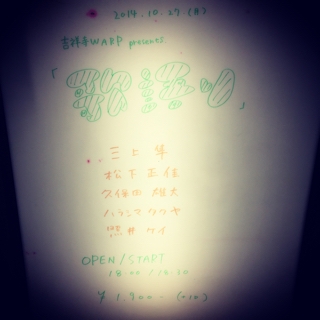 2014.10.27(月)
吉祥寺WARP presents.
「歌語り」
三上隼
松下正佳
久保田雄大
ハラシマタクヤ
熊井ケイ
OPEN/START
18:00/18:30
¥1,900- (+1D)